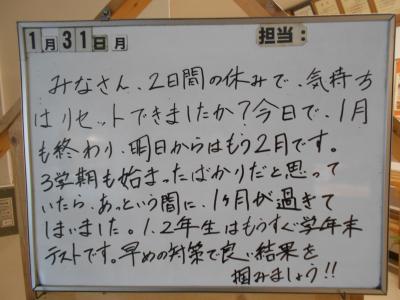 1月31日月 担当:
みなさん、2日間の休みで、気持方
はリセットできましたか?今日で、1月
も終わり、明日からはもう2月です。
3学期も始まったばかりだと思って
いたら、あっという間に、1ヶ月が過ぎて
しまいました。1.2年生はもうすぐ学年末
テストです。早めの対策で良い結果を
掴みましょう!!